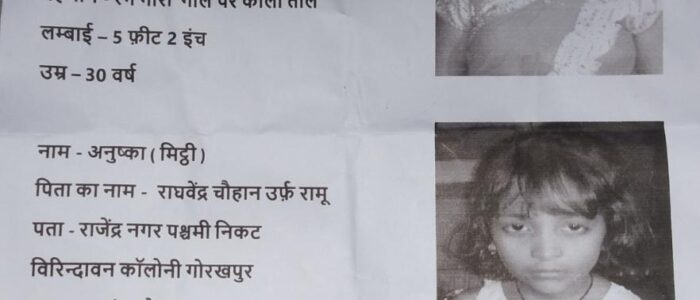 गोरा गाल पर काला
लम्बाई – 5 फ़ीट 2 इंच
उम्र – 30 वर्ष
नाम - अनुष्का ( मिट्ठी )
पिता का नाम - राघवेंद्र चौहान उर्फ़ रामू
पता - राजेंद्र नगर पश्चमी निकट
विरिन्दावन कॉलोनी गोरखपुर